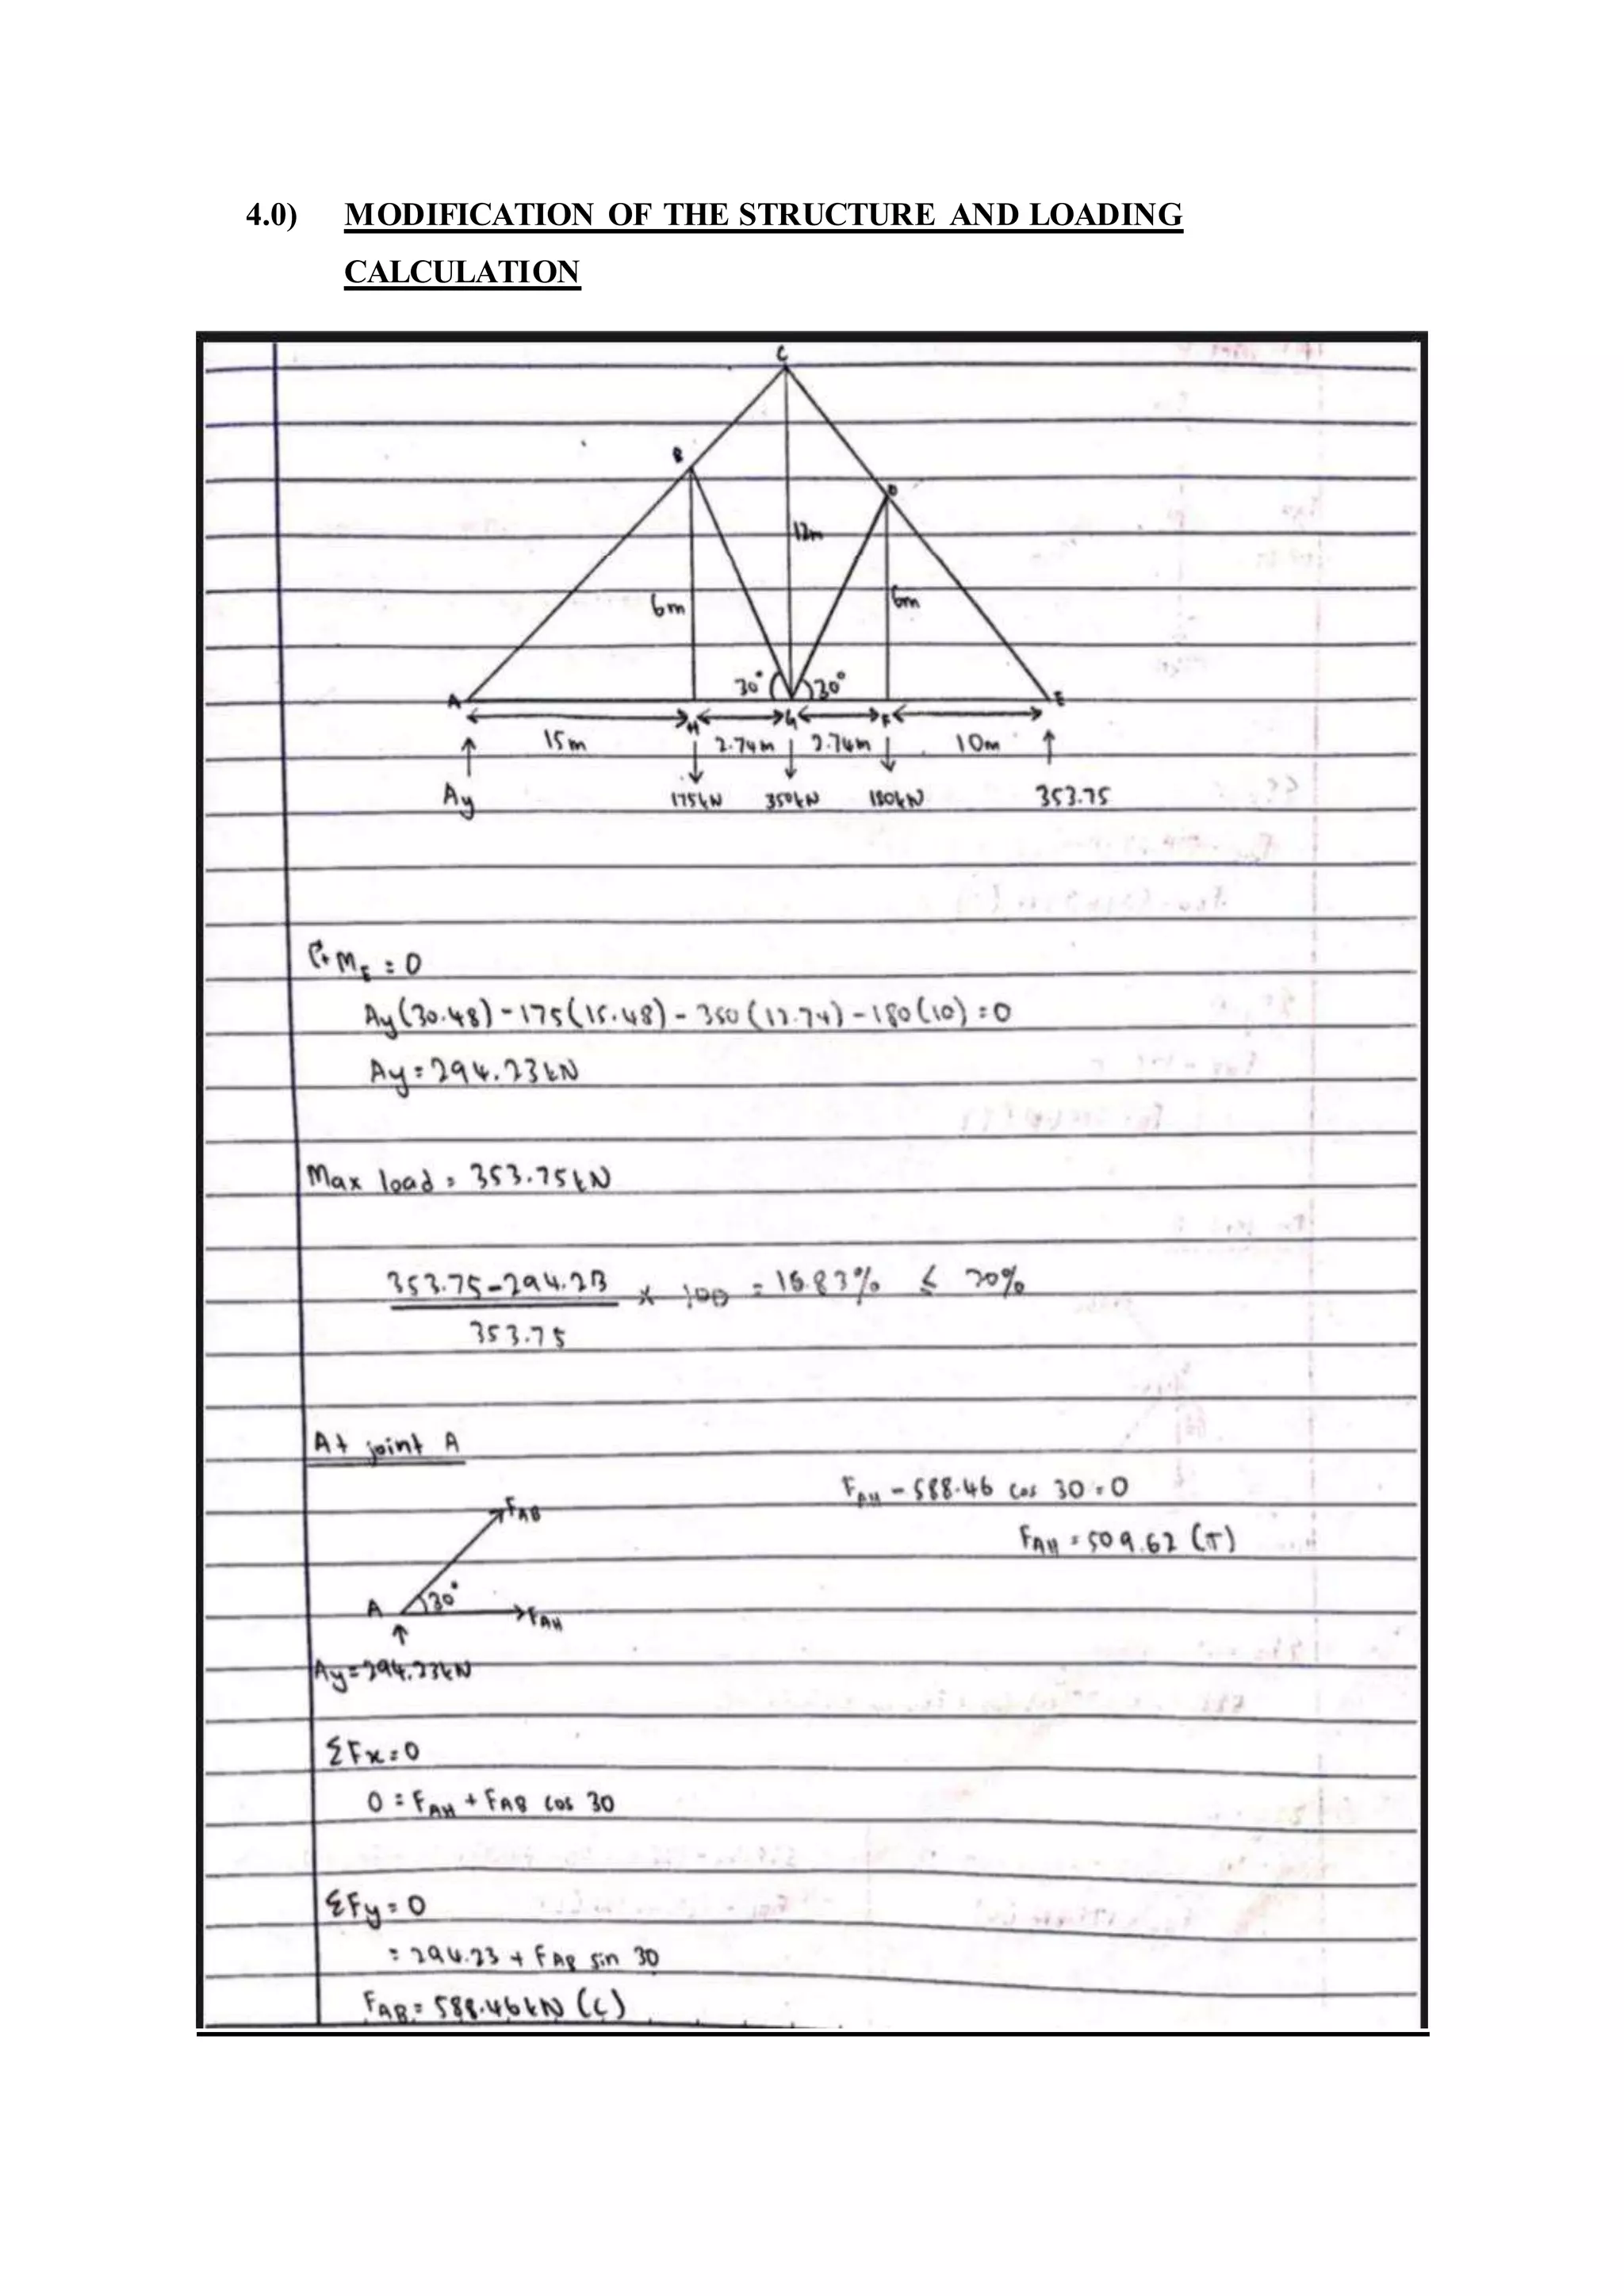 4.0) MODIFICATION OF THE STRUCTURE AND LOADING
CALCULATION
C
B
D
12m
6m
6m
30° 30°
A E
H G F
15m 2.74m 2.74m 10m
Ay 175kN 350kN 180kN 353.75
+ M_E = 0
Ay(30.48) - 175(15.48) - 350(12.74) - 180(10) = 0
Ay = 294.23kN
Max load = 353.75kN
353.75-294.23 x 100 = 16.83% ≤ 20%
353.75
At joint A
F_AH - 588.46 cos 30 = 0
F_AB
F_AH = 509.62 (T)
A 30°
F_AH
Ay = 294.23kN
ΣFx = 0
0 = F_AH + F_AB cos 30
ΣFy = 0
= 294.23 + F_AB sin 30
F_AB = 588.46kN (C)